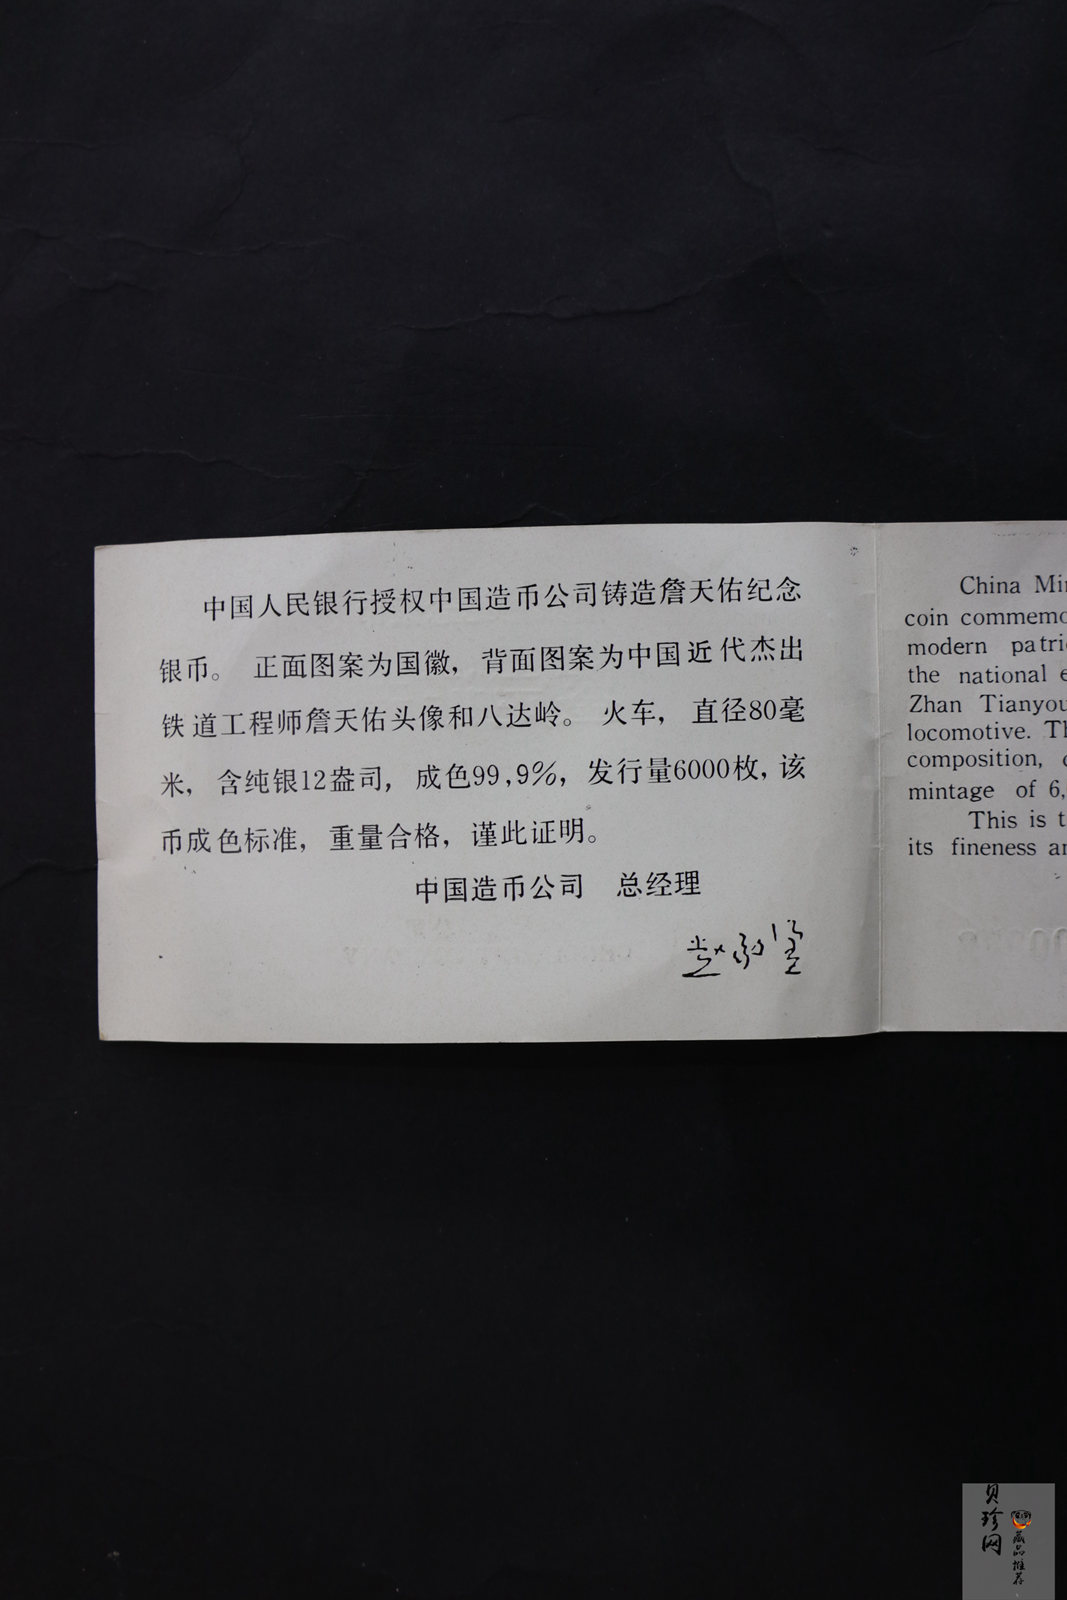 中国人民银行授权中国造币公司铸造詹天佑纪念
银币。 正面图案为国徽，背面图案为中国近代杰出
铁道工程师詹天佑头像和八达岭。 火车， 直径80毫
米， 含纯银12盎司， 成色99,9%， 发行量6000枚，该
币成色标准， 重量合格， 谨此证明。
中国造币公司 总经理
China Min
coin commemo
modern patrio
the national e
Zhan Tianyou
locomotive. Th
composition,
mintage of 6,
This is t
its fineness an
贝珍网
藏品推荐